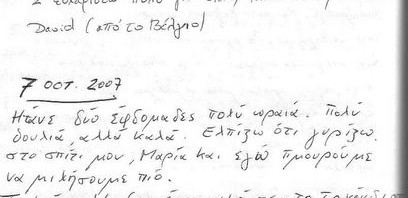 David (από το Βέλγιο)
7 ΟCT. 2007
Ητανε δύο εφδομαδες πολύ ωραιά. Πολύ
δουλιά, αλλά καλά. Ελπίζω ότι γυρίζω
στο σπίτι μου, Μαρία και εγώ πμουρούμε
να μιλήσουμε πιό.